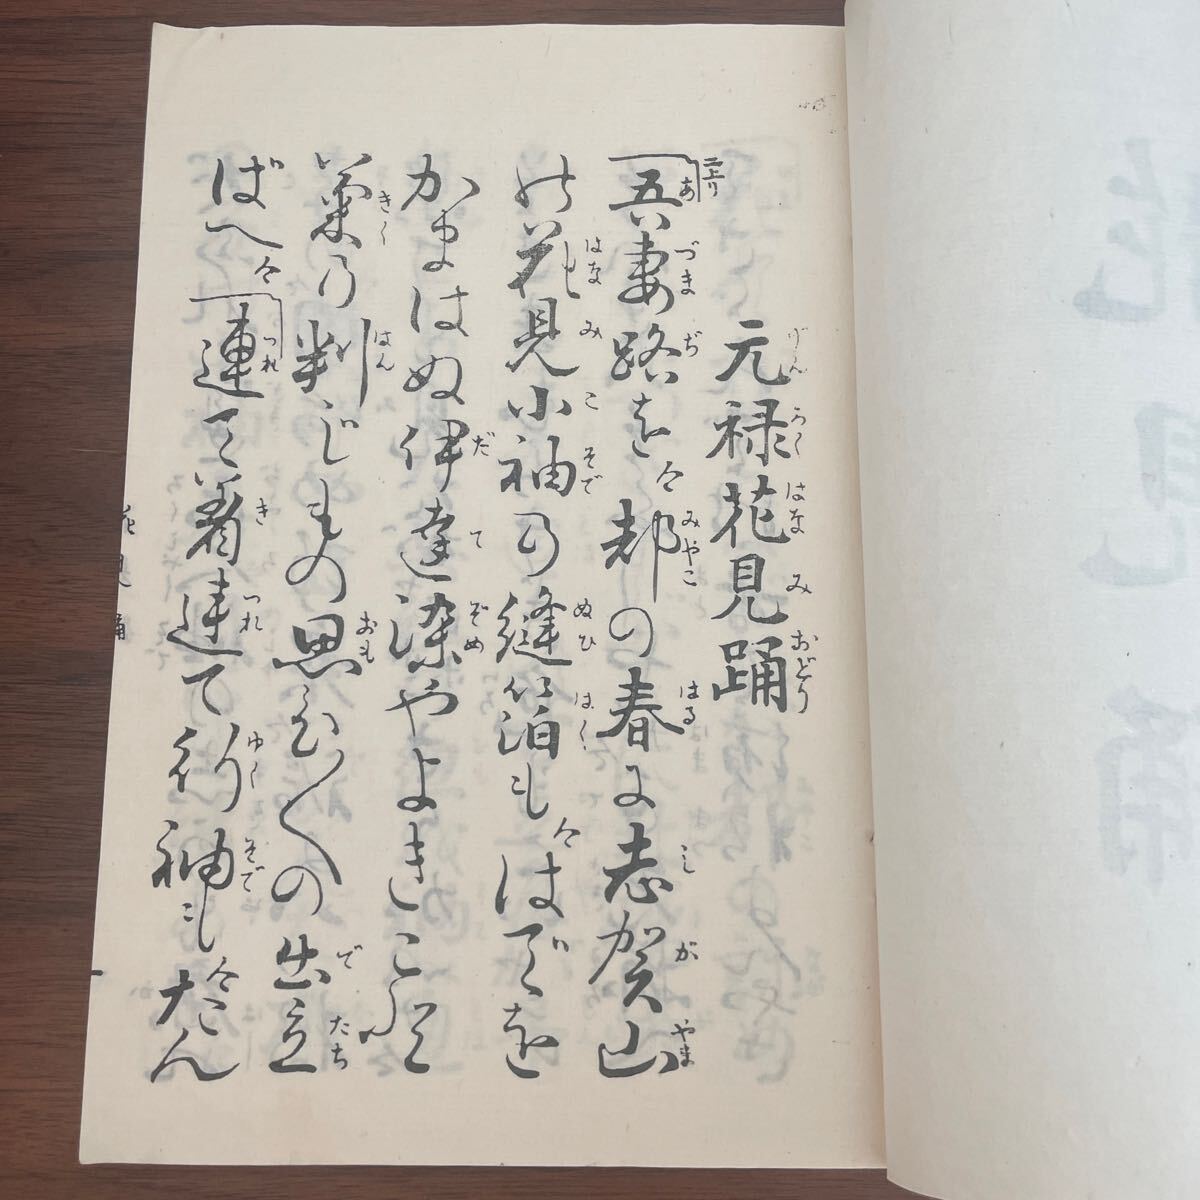 元禄花見踊
二上り
吾妻路を都の春に志賀山
の花見小袖の縫箔もはでを
かまはぬ伊達染やよきこと
菊の判じもの思ひ〳〵の出立
ばへ連て着連て行袖もだん